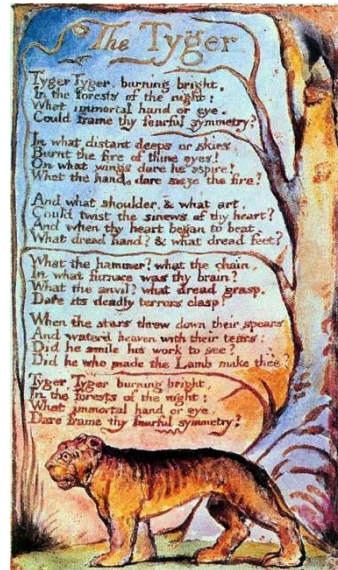 The Tyger
Tyger Tyger, burning bright,
In the forests of the night:
What immortal hand or eye,
Could frame thy fearful symmetry?
In what distant deeps or skies,
Burnt the fire of thine eyes?
On what wings dare he aspire?
What the hand, dare sieze the fire?
And what shoulder, & what art,
Could twist the sinews of thy heart?
And when thy heart began to beat,
What dread hand? & what dread feet?
What the hammer? what the chain,
In what furnace was thy brain?
What the anvil? what dread grasp,
Dare its deadly terrors clasp?
When the stars threw down their spears
And water'd heaven with their tears:
Did he smile his work to see?
Did he who made the Lamb make thee?
Tyger, Tyger burning bright,
In the forests of the night:
What immortal hand or eye,
Dare frame thy fearful symmetry?